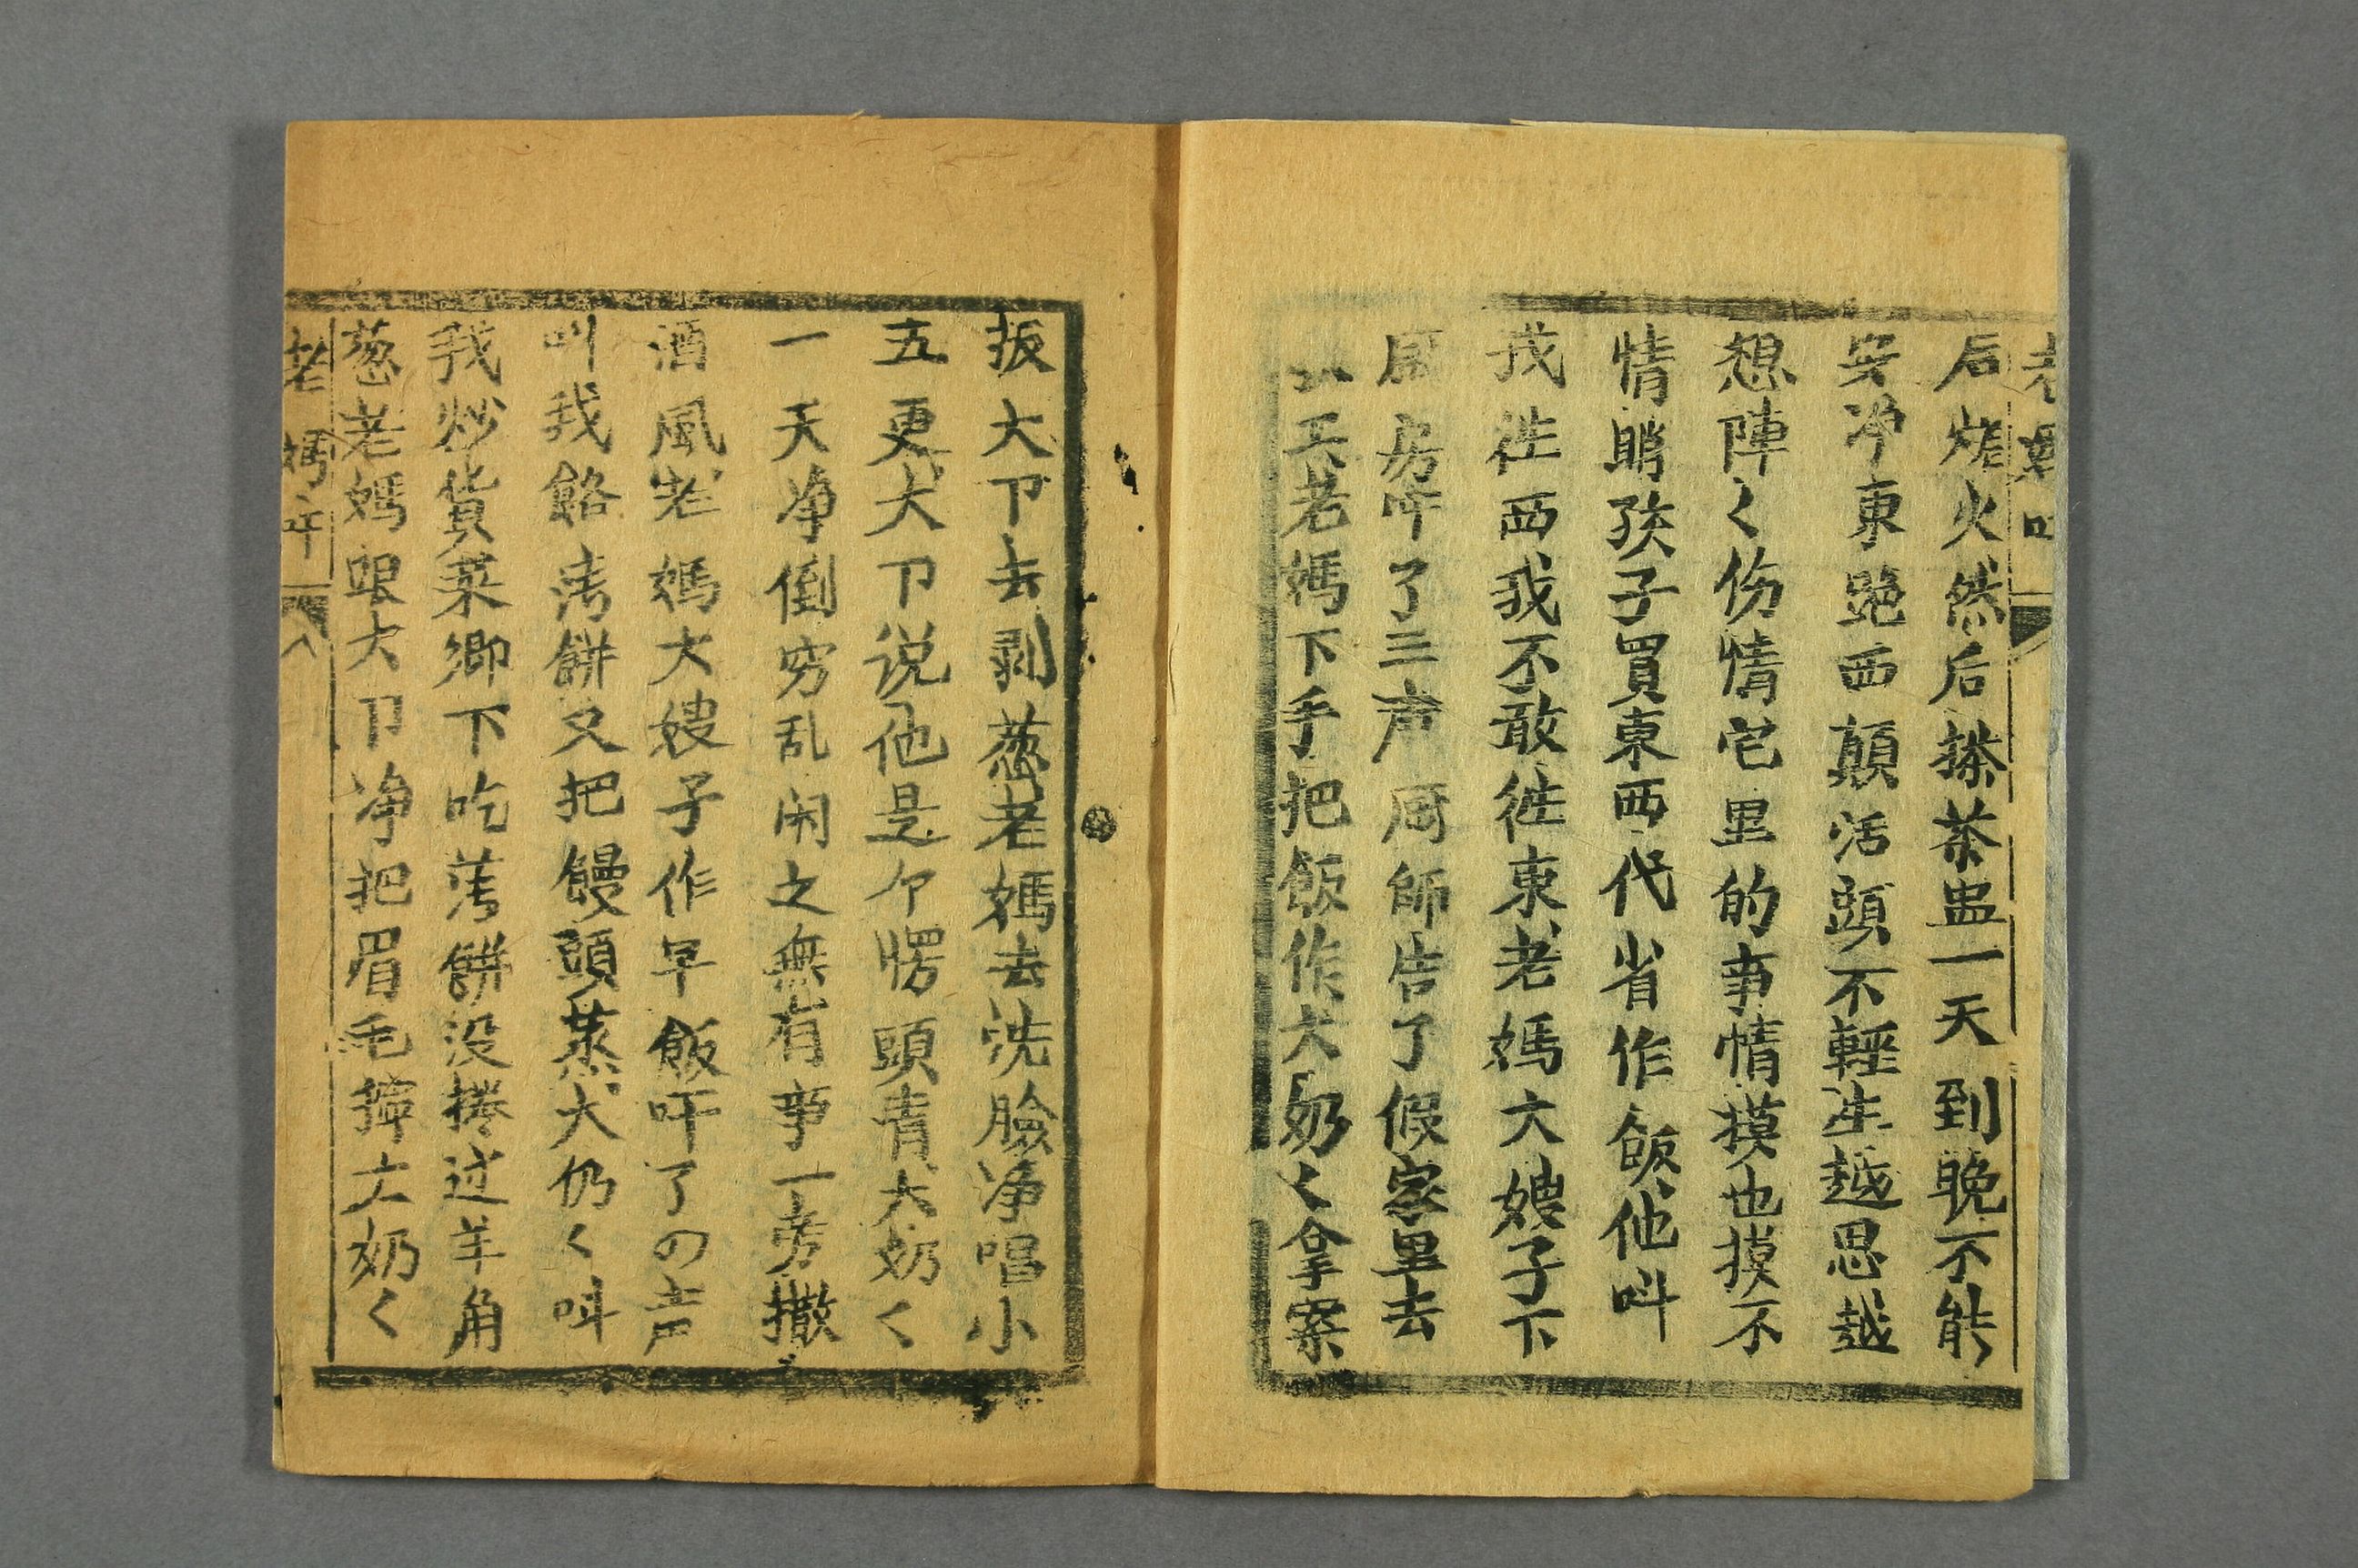 后烧火然后搽茶盅一天到晚不能
安净東跪西顛活頭不輕生越思越
想陣く伤情宅里的事情摸也摸不
情眵孩子買東西代省作飯他呌
我徃西我不敢徃東老媽大嫂子下
厨房吁了三声厨師告了假家里去
兵老媽下手把飯作大奶く拿案
扳大卩去剥葱老媽去洗臉净唱小
五更大卩说他是个愣頭青大奶く
一天净倒穷乱闹之無有事一旁撒
酒風老媽大嫂子作早飯吁了の声
叫我餎薄餅又把饅頭蒸大奶く呌
我炒貨菜卿下吃薄餅没捲过羊角
葱老媽跟大卩净把眉毛擰大奶く
老媽吁
八